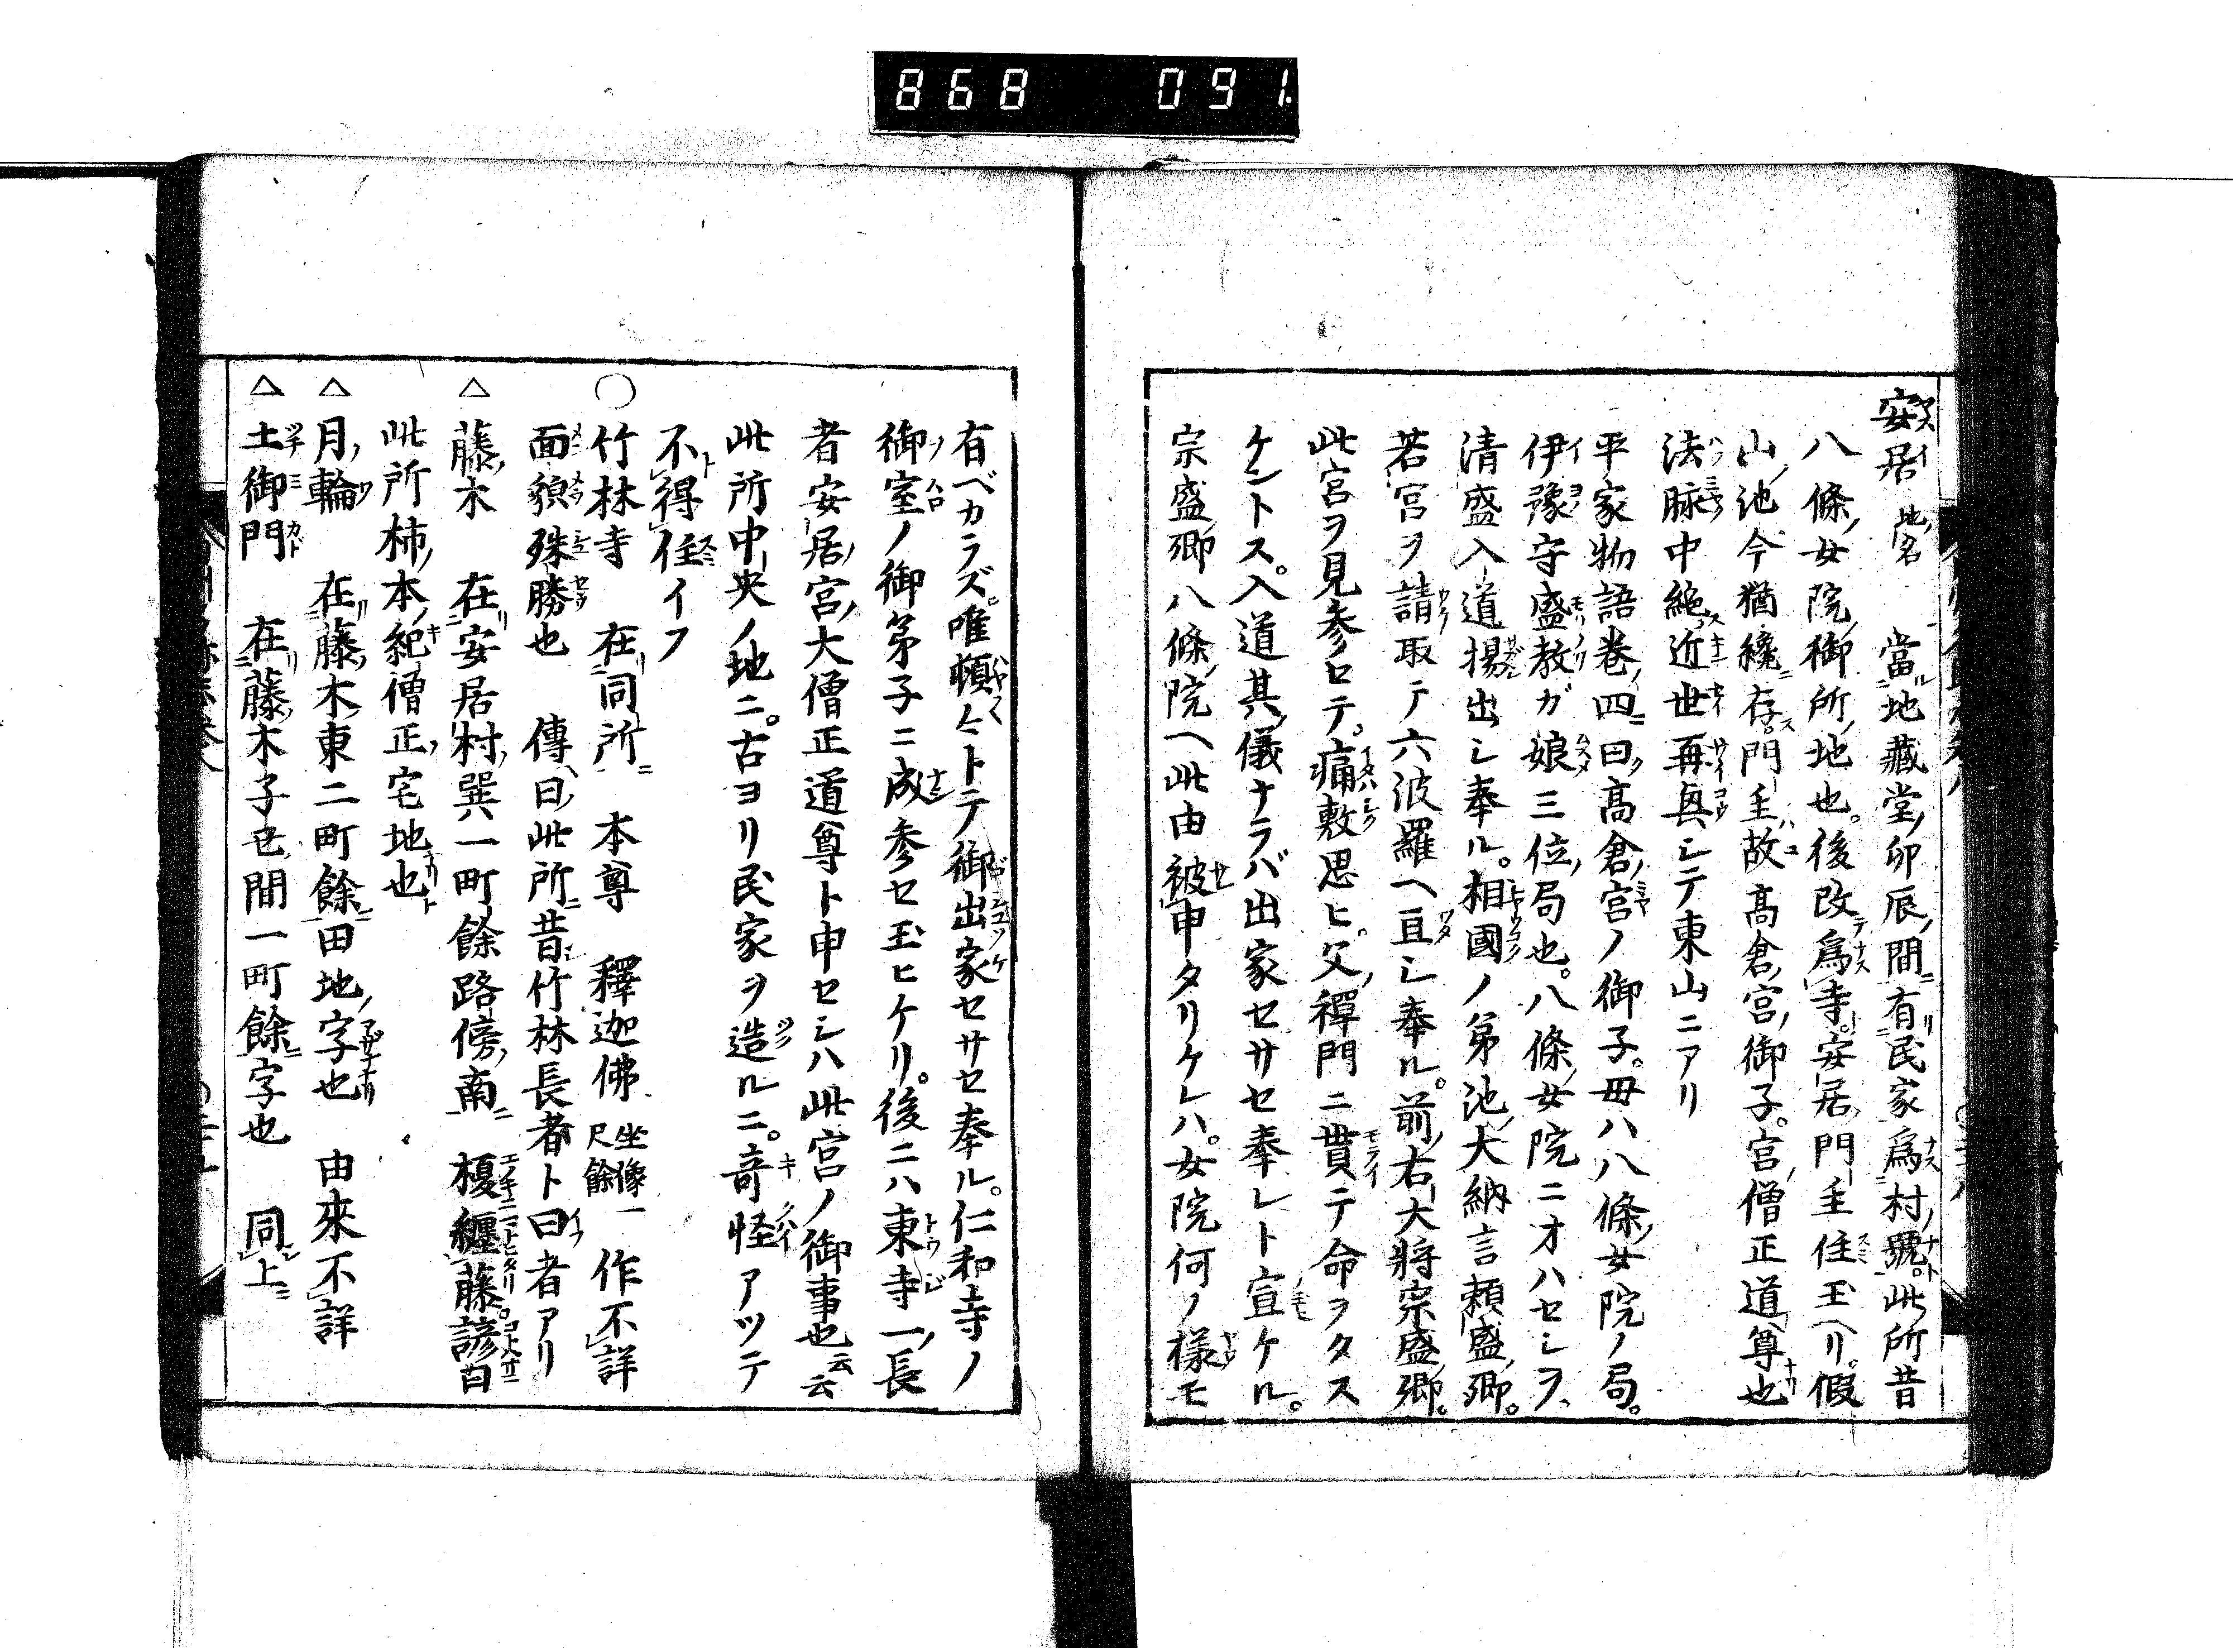 868 091
安居 地名 當地藏堂卯辰間有民家爲村號此所昔
八條女院御所地也。後改爲寺。安居門主住玉ヘリ。假
山池今猶纔存。門主故高倉宮御子。宮僧正道尊也
法脉中絶近世再興シテ東山ニアリ
平家物語卷四曰高倉宮ノ御子。毋ハ八條女院ノ局。
伊豫守盛教ガ娘三位局也。八條女院ニオハセシヲ、
清盛入道揚出シ奉ル。相國ノ弟池大納言頼盛卿。
若宮ヲ請取テ六波羅ヘ亘シ奉ル。前右大將宗盛卿。
此宮ヲ見參ロテ。痛敷思ヒ。父禪門ニ貰テ命ヲタス
ケントス。入道其儀ナラバ出家セサセ奉レト宣ケル。
宗盛卿八條院ヘ此由被申タリケレハ。女院何ノ樣モ
有ベカラズ。唯頓々トテ御出家セサセ奉ル。仁和寺ノ
御室ノ御弟子ニ成參セ玉ヒケリ。後ニハ東寺一長
者安居宮大僧正道尊ト申セシハ此宮ノ御事也云云
此所中央ノ地ニ。古ヨリ民家ヲ造ルニ。竒怪アツテ
不得住イフ
○竹林寺 在同所 本尊 釋迦佛 坐像一尺餘 作不詳
面貌殊勝也 傳曰此所昔竹林長者ト曰者アリ
△藤木 在安居村巽一町餘路傍南 榎纏藤諺曰
此所柿本紀僧正宅地也
△月輪 在藤木東二町餘田地字也 由來不詳
△土御門 在藤木子丑間一町餘字也 同上